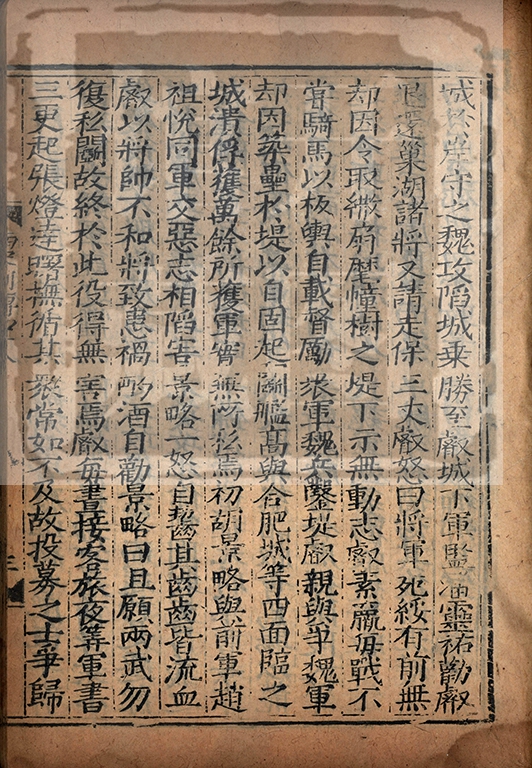 城於岸守之魏攻陷城乗勝至叡城下軍監潘靈祐勸叡
退還巢湖諸將又請走保三丈叡怒曰將軍死綏有前無
却因令取繖扇麾幢樹之堤下示無動志叡素羸毎戰不
嘗騎馬以板輿自載督勵衆軍魏兵鑿堤叡親與爭魏軍
却因築壘於堤以自固起鬭艦高與合肥城等四面臨之
城潰俘獲萬餘所獲軍實無所私焉初胡景略與前軍趙
祖悅同軍交惡志相陷害景略一怒自齧其齒齒皆流血
叡以將帥不和將致患禍酌酒自勸景略曰且願兩武勿
復私鬭故終於此役得無害焉叡毎晝接客旅夜筭軍書
三更起張燈達曙撫循其衆常如不及故投募之士爭歸